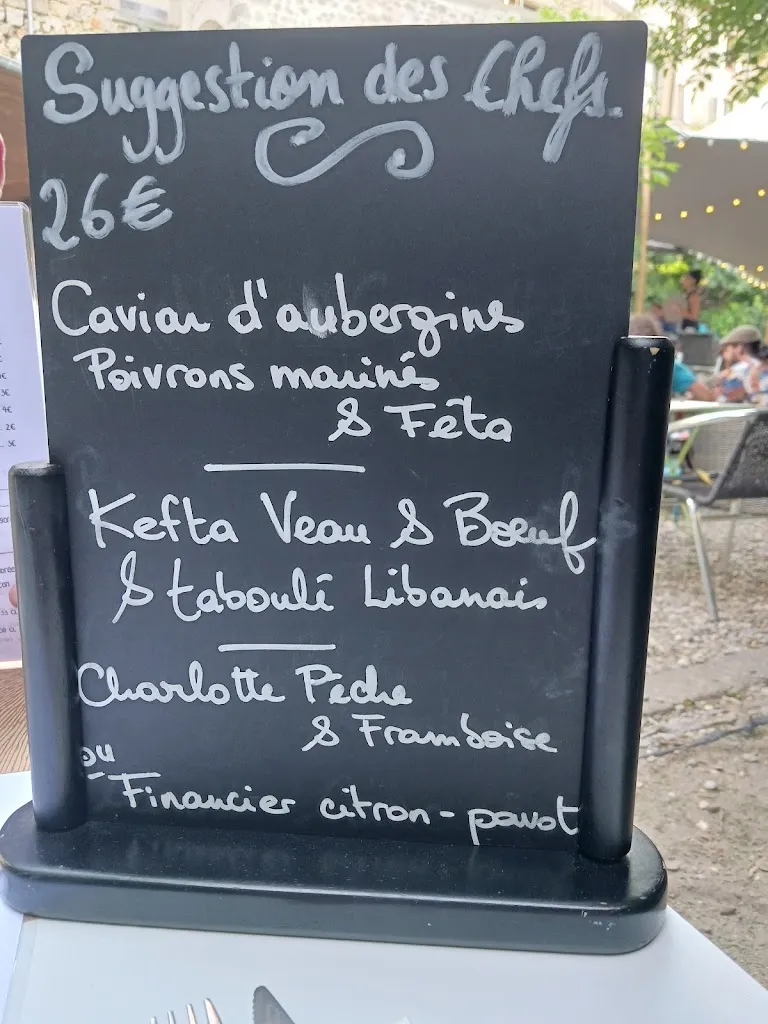 Suggestion des Chefs.
26€
Caviar d'aubergins
Poivrons marinés
& Fêta
Kefta Veau & Boeuf
& taboulé Libanais
Charlotte Pêche
& Framboise
ou
Financier citron-pavot